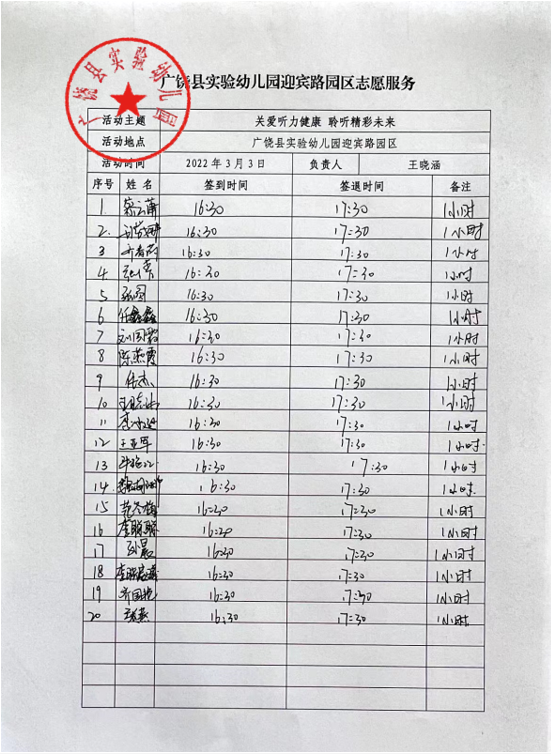 广饶县实验幼儿园
广饶县实验幼儿园迎宾路园区志愿服务
活动主题 关爱听力健康 聆听精彩未来
活动地点 广饶县实验幼儿园迎宾路园区
活动时间 2022年3月3日 负责人 王晓涵
序号 姓名 签到时间 签退时间 备注
1 16:30 17:30 1小时
2. 16:30 17:30 1小时
3 16:30 17:30 1小时
4 16:30 17:30 1小时
5 16:30 17:30 1小时
6 任鑫鑫 16:30 17:30 1小时
7 16:30 17:30 1小时
8 陈燕霞 16:30 17:30 1小时
9 16:30 17:30 1小时
10 16:30 17:30 1小时
11 16:30 17:30 1小时
12 王亚军 16:30 17:30 1小时
13 16:30 17:30 1小时
14 16:30 17:30 1小时
15 16:30 17:30 1小时
16 李聪聪 16:30 17:30 1小时
17 孙晨 16:30 17:30 1小时
18 16:30 17:30 1小时
19 齐国艳 16:30 17:30 1小时
20 16:30 17:30 1小时